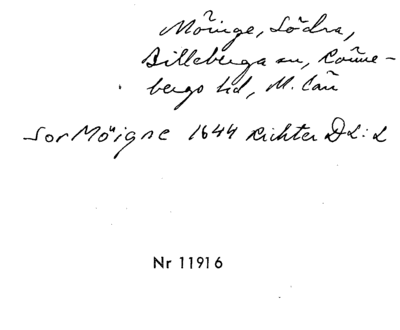 Möinge, Södra,
Billeberga sn, Rönne-
bergs hd, M. län
Sor Möigne 1644 Richter DL:L
Nr 11916